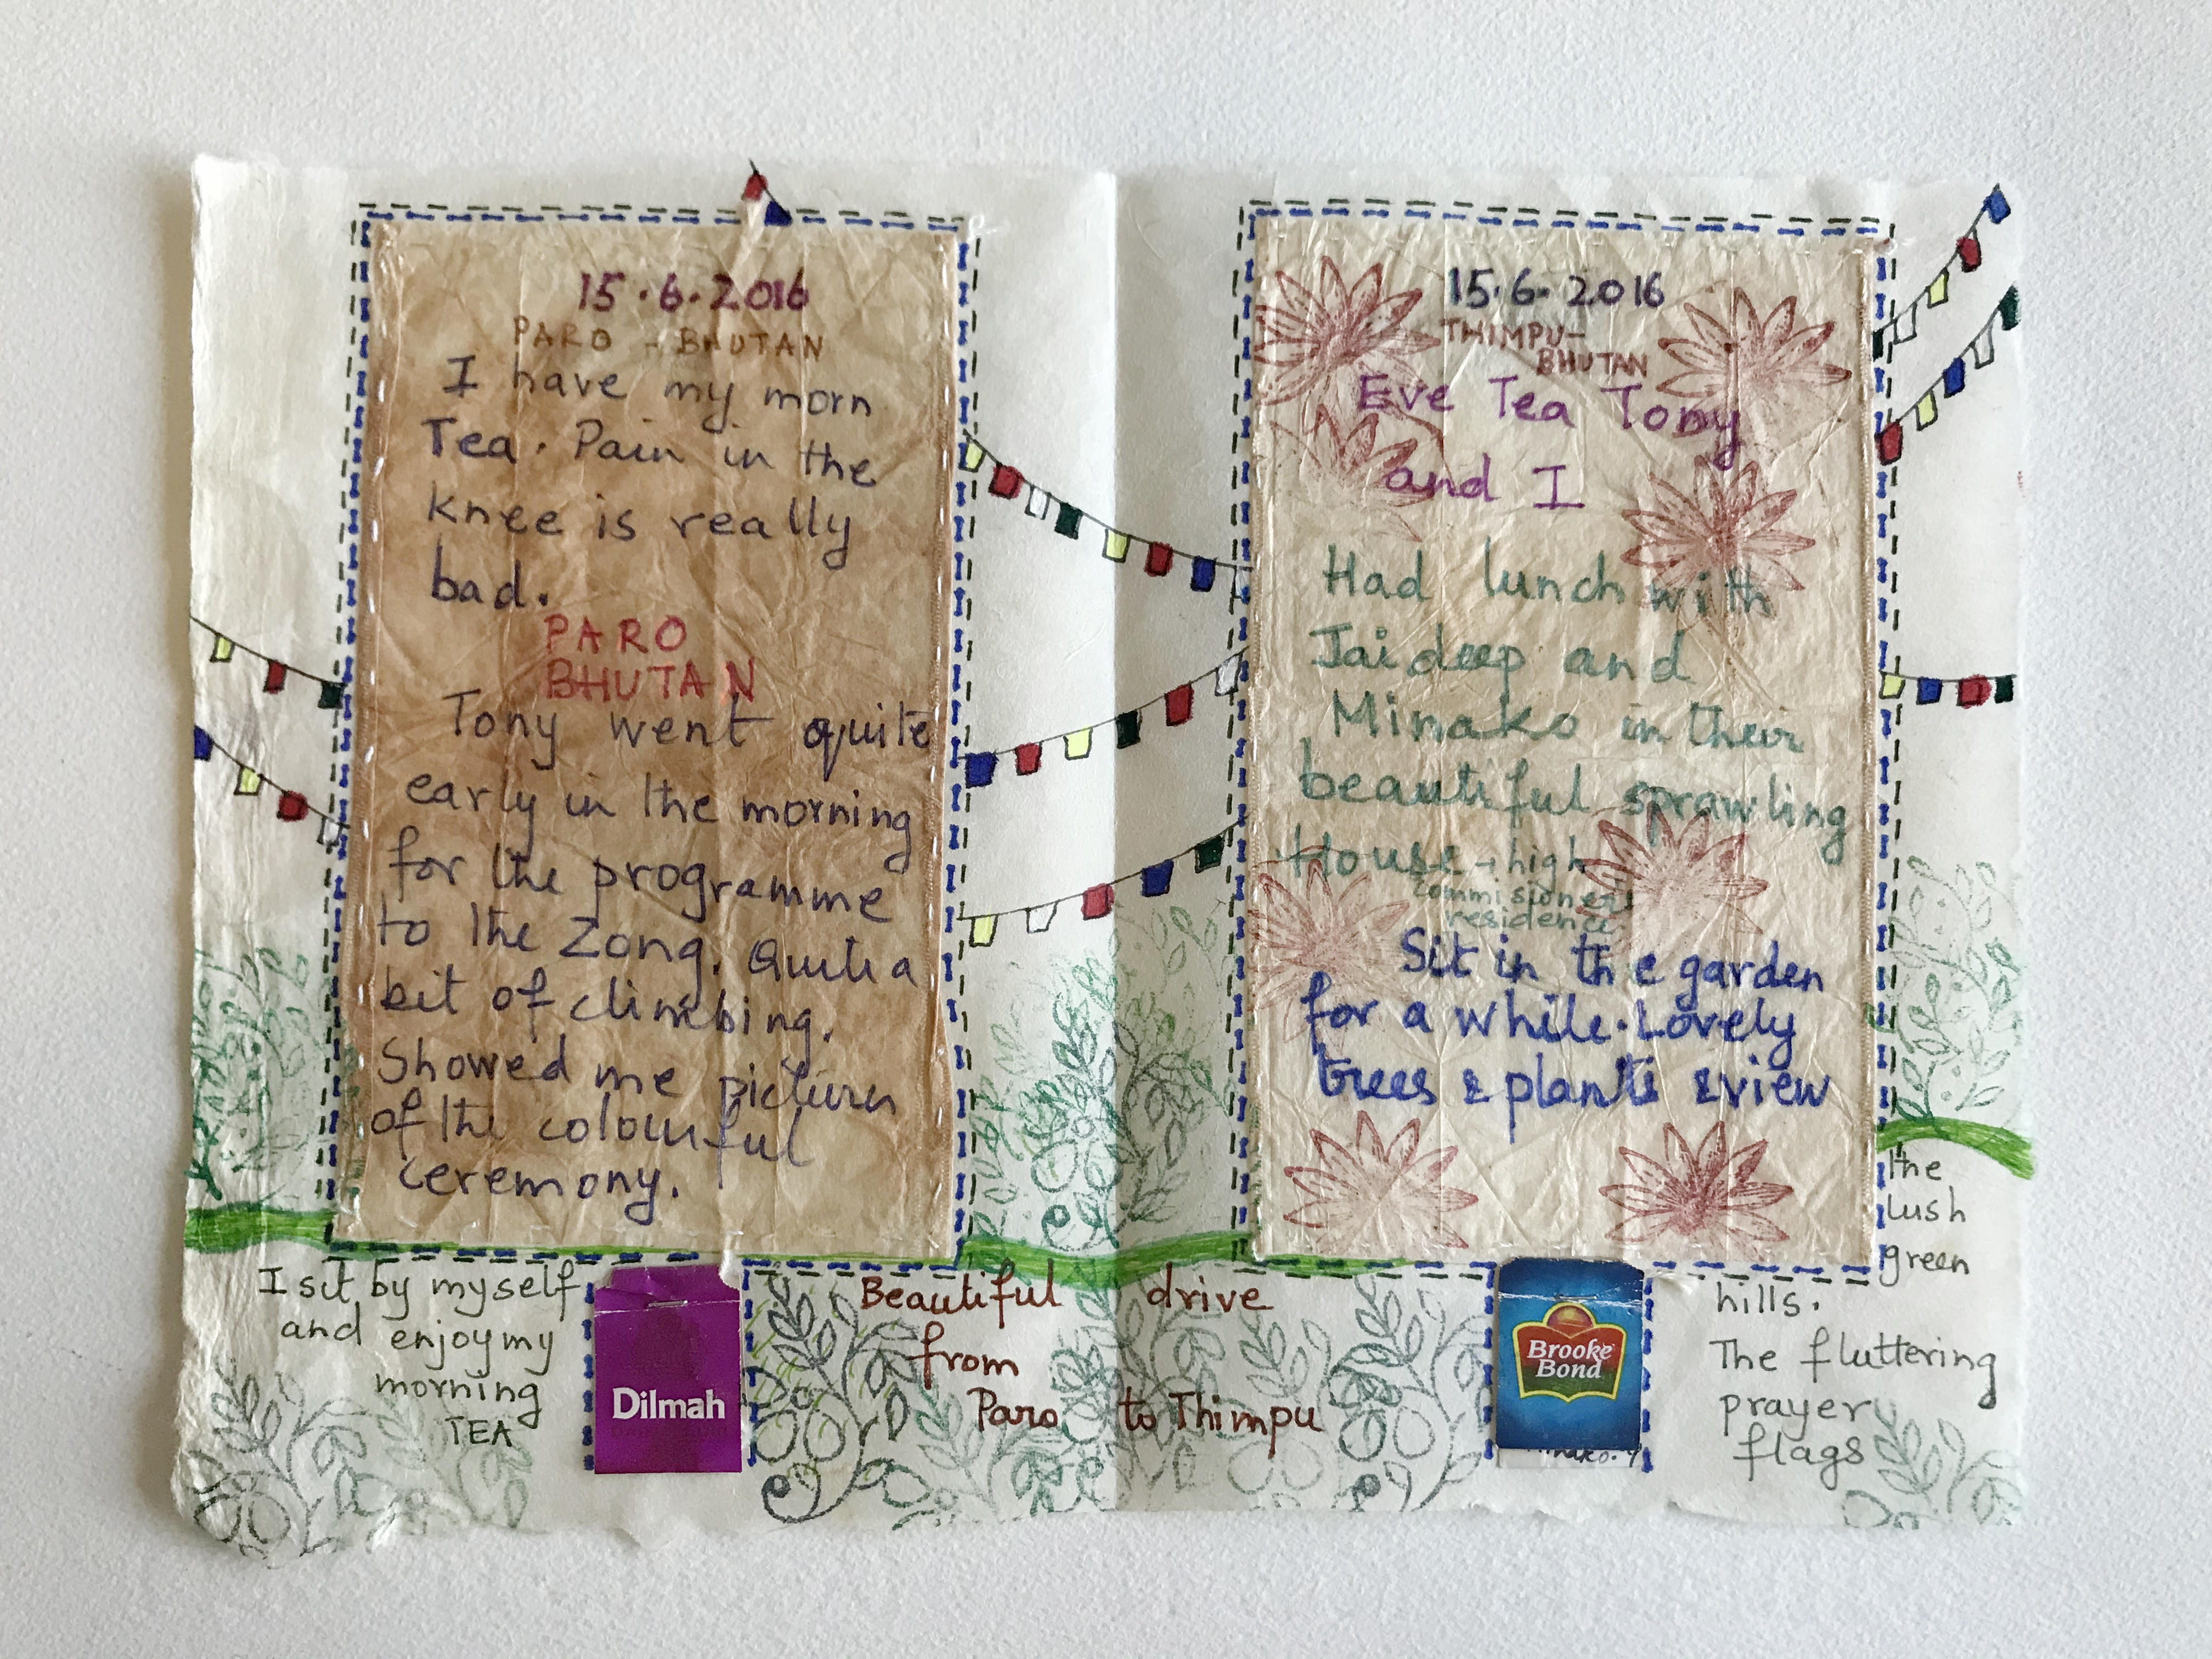 15.6.2016
PARO - BHUTAN
I have my morn
Tea. Pain in the
knee is really
bad.
PARO
BHUTAN
Tony went quite
early in the morning
for the programme
to the Zong. Quite a
bit of climbing.
Showed me pictures
of the colourful
ceremony.
I sit by myself
and enjoy my
morning
TEA
Dilmah
15.6.2016
THIMPU-
BHUTAN
Eve Tea Tony
and I
Had lunch with
Jaideep and
Minako in their
beautiful sprawling
House - high
commisioner's
residence.
Sit in the garden
for a while. Lovely
trees & plants & view
Beautiful drive
from
Paro to Thimpu
Brooke
Bond
the
lush
green
hills.
The fluttering
prayer
flags